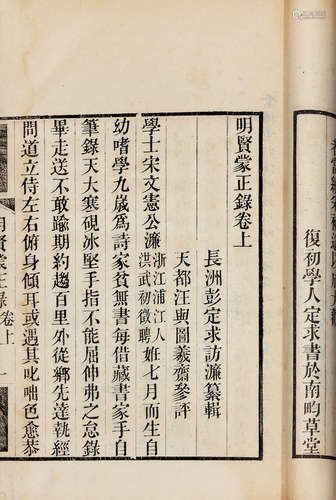 復初學人定求書於南畇草堂
明賢蒙正錄卷上
長洲彭定求訪濂纂輯
天都汪與圖羲齋參評
學士宋文憲公濂浙江浦江人洪武初徵聘姙七月而生自
幼嗜學九歲爲詩家貧無書每借藏書家手自
筆錄天大寒硯冰堅手指不能屈伸弗之怠錄
畢走送不敢踰期約趨百里外從鄉先達執經
問道立侍左右俯身傾耳或遇其叱咄色愈恭
明賢蒙正錄
卷上
一